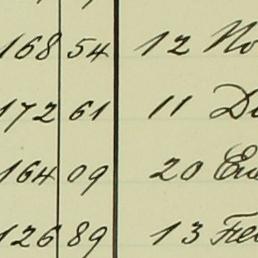 168 54 12 No
172 61 11 De
164 09 20
126 89 13